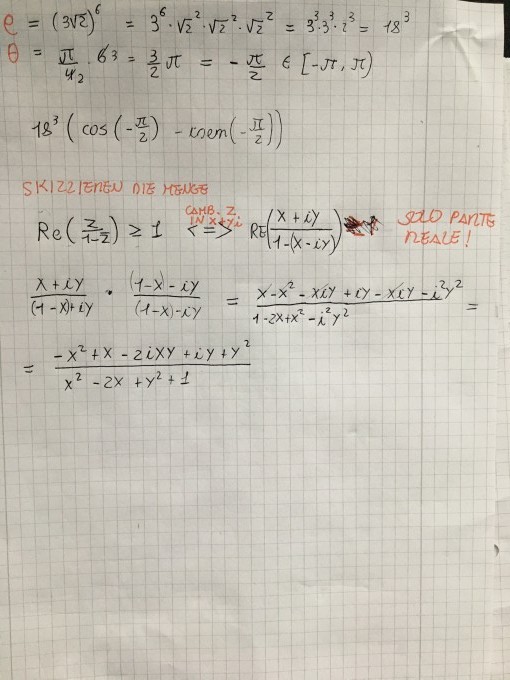 ρ = (3√2)^6 = 3^6 · √2^2 · √2^2 · √2^2 = 3^3 · 3^3 · 2^3 = 18^3
θ = π/4 2 · 6 3 = 3/2 π = - π/2 ∈ [-π, π)
18^3 (cos(-π/2) - i sem(-π/2))
SKIZZIEREN DIE MENGE
CAMB. Z IN X+Yi
Re(z/(1-z̄)) ≥ 1 <=> RE((x+iy)/(1-(x-iy))) SOLO PARTE REALE!
(x+iy)/((1-x)+iy) · ((1-x)-iy)/((1-x)-iy) = (x-x²-xiy+iy-xiy-i²y²)/(1-2x+x²-i²y²) =
= (-x²+x-2ixy+iy+y²)/(x²-2x+y²+1)